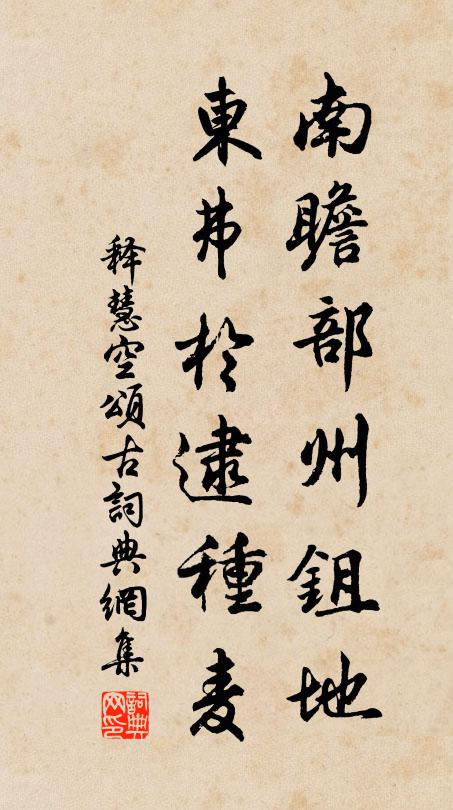 南瞻部州鉏地
東弗於逮種麦
释慧空頌古詞典網集
詞典网印